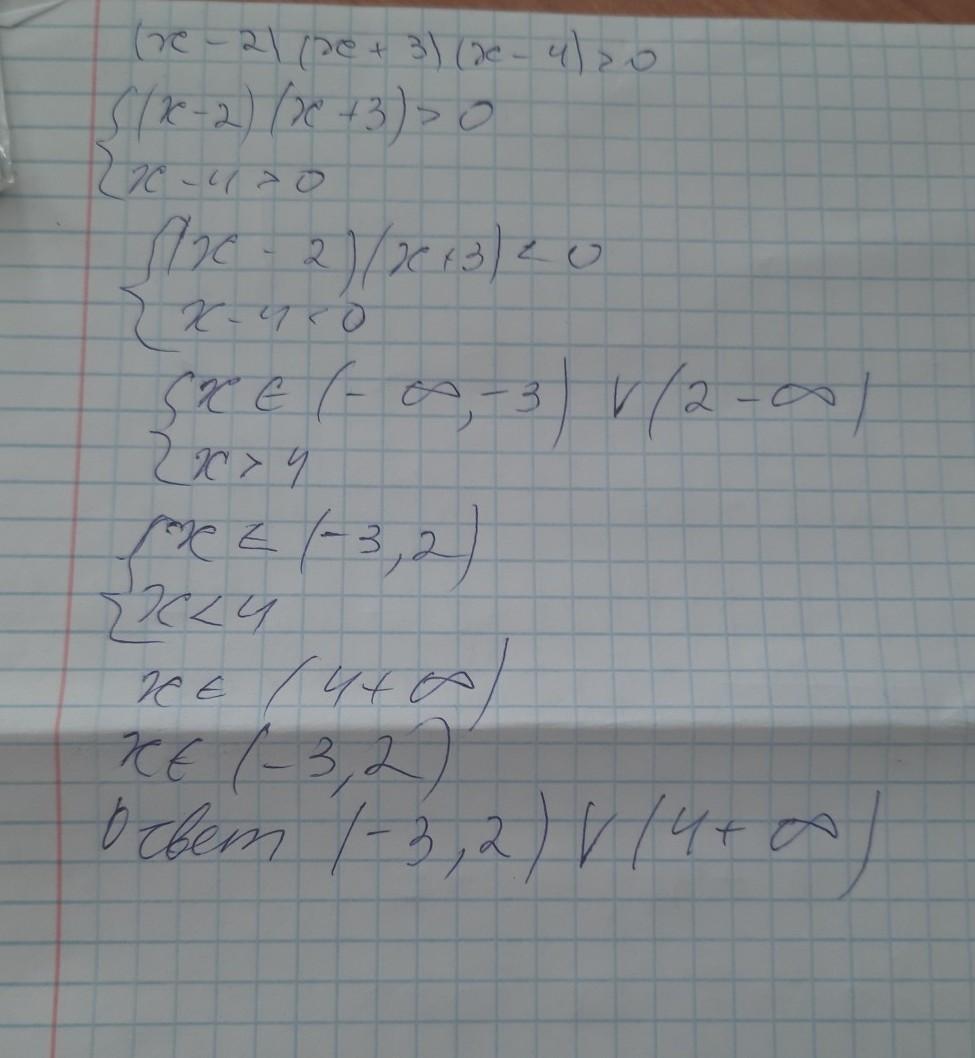 (x - 2) (x + 3) (x - 4) > 0
{ (x - 2) (x + 3) > 0
x - 4 > 0
{ (x - 2) (x + 3) < 0
x - 4 < 0
{ x ∈ (- ∞, -3) V (2 - ∞)
x > 4
{ x ∈ (-3, 2)
x < 4
x ∈ (4 + ∞)
x ∈ (-3, 2)
Ответ (-3, 2) V (4 + ∞)